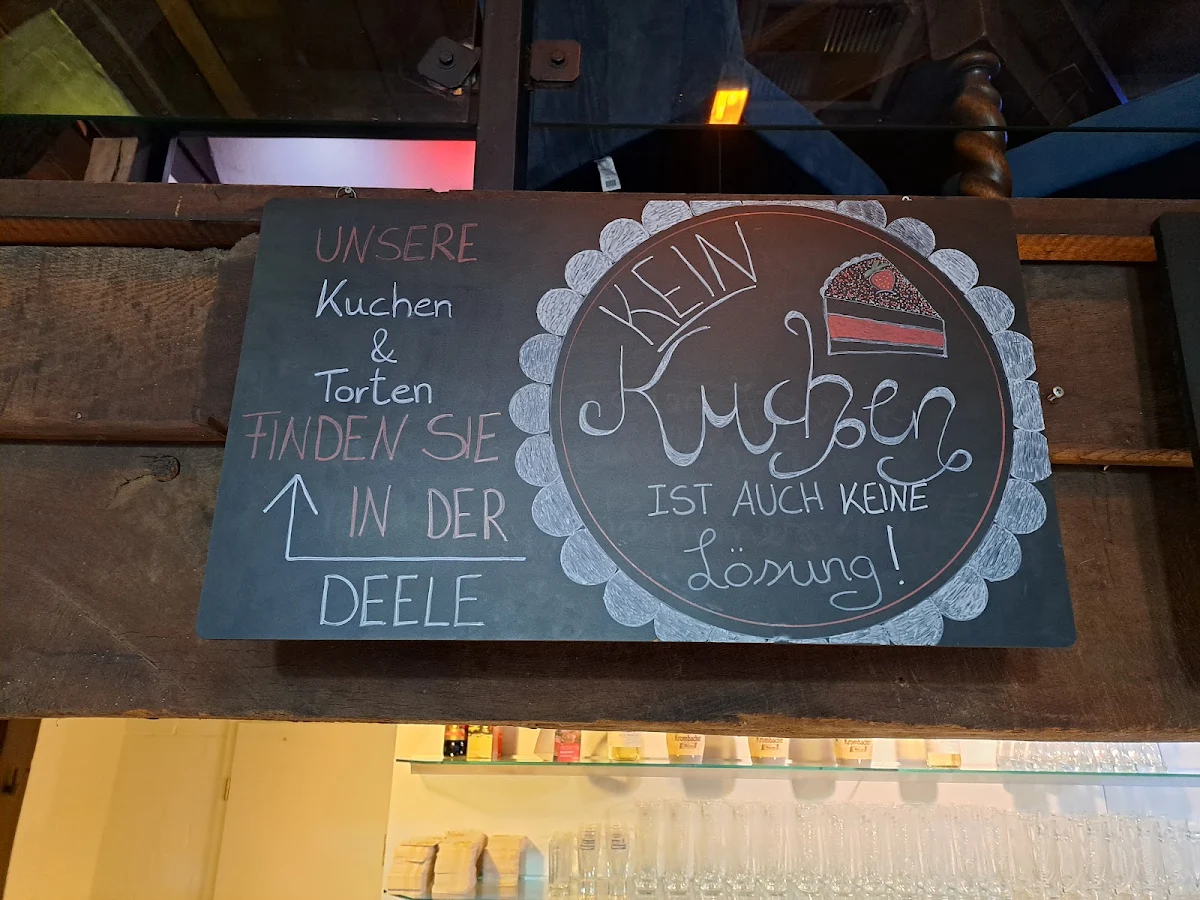 UNSERE
Kuchen
&
Torten
FINDEN SIE
IN DER
DEELE
KEIN
Kuchen
IST AUCH KEINE
Lösung!
Krombacher
Krombacher
Krombacher